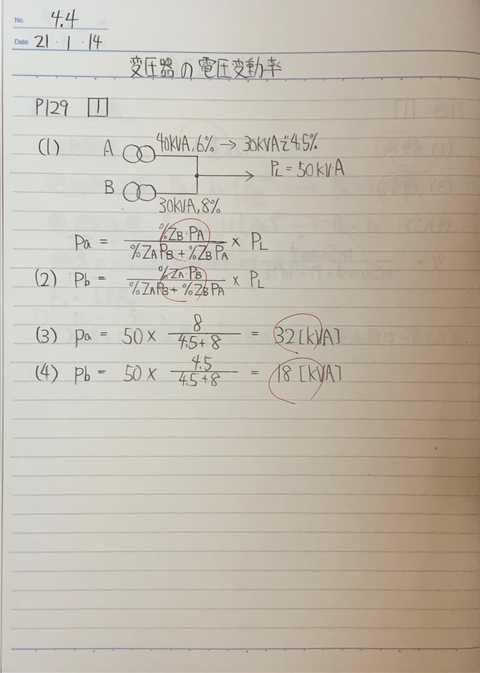 No. 4.4
Date 21・1・14
変圧器の電圧変動率
P129 1
(1) A 40kVA,6% → 30kVAで4.5%
PL = 50kVA
B 30kVA,8%
Pa = %ZB・PA / %ZAPB + %ZBPA × PL
(2) Pb = %ZA・PB / %ZAPB + %ZBPA × PL
(3) Pa = 50 × 8 / 4.5+8 = 32[kVA]
(4) Pb = 50 × 4.5 / 4.5+8 = 18[kVA]